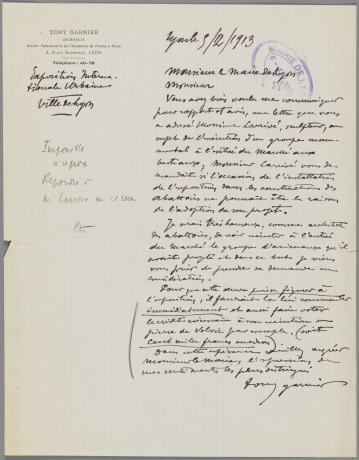 TONY GARNIER
ARCHITECTE
Ancien Pensionnaire de l'Académie de France à Rome
4, Place Raspail, LYON
Téléphone : 40-78
Exposition Interna-
tionale Urbaine
Ville de Lyon
Répondre à
Lyon le 5/2/1913
MAIRIE DE LYON
Monsieur le Maire de Lyon
Monsieur
Vous avez bien voulu me communiquer
pour rapport et avis, une lettre que vous
a adressé Monsieur Larrivé, sculpteur, au
sujet de l'exécution d'un groupe monu-
mental à l'entrée du Marché aux
bestiaux ; Monsieur Larrivé vous de-
mandait si l'occasion de l'installation
de l'exposition dans les constructions des
abattoirs ne pouvait être la raison
de l'adoption de son projet.
Je serais très heureux, comme architecte
des abattoirs, de voir exécuter à l'entrée
du Marché le groupe d'animaux qu'il
avait projeté et dans ce but je viens
vous prier de prendre sa demande en
considération.
Pour que cette œuvre puisse figurer à
l'exposition, il faudrait la lui commander
immédiatement et aussi faire voter
le crédit nécessaire à son exécution en
pierre de par exemple. (soit
cent mille francs environ)
Dans cette espérance veuillez agréer
Monsieur le Maire, l'expression de
mes sentiments les plus distingués
Tony Garnier